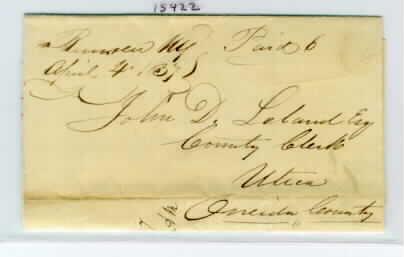 15422
Remsen NY Paid 6
April 4 1837
John D. Leland Esq
County Clerk
Utica
Oneida County